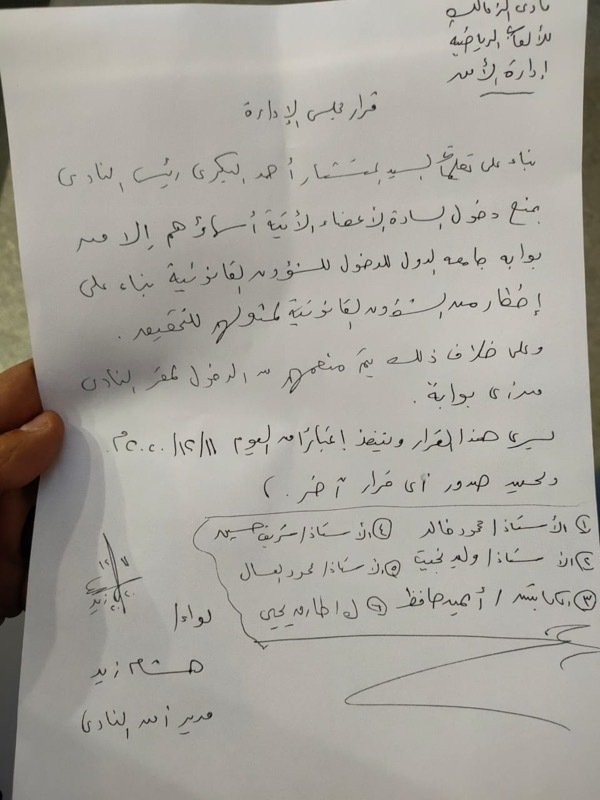 نادى الزمالك
للألعاب الرياضية
إدارة الأمن
قرار مجلس الإدارة
بناء على تعليمات السيد المستشار أحمد البكرى رئيس النادى
بمنع دخول السادة الأعضاء الأتية أسماؤهم إلا من
بوابه جامعه الدول للدخول للشؤون القانونية بناء على
إخطار من الشؤون القانونية لمثولهم للتحقيق.
وعلى خلاف ذلك يتم منعهم من الدخول لمقر النادى
من أى بوابة.
يسرى هذا القرار وينفذ إعتباراً من اليوم ١١/١٢/٢٠٢٠م.
ولحين صدور أى قرار آخر.
① الأستاذ/ محمود خالد ④ الأستاذ/ شريف حسين
② الأستاذ/ وليد نجيب ⑤ الأستاذ/ محمود العسال
③ الكابتن/ أيمن حافظ ⑥ ك/ طارق يحيى
لواء/
هشام زيد
مدير أمن النادى